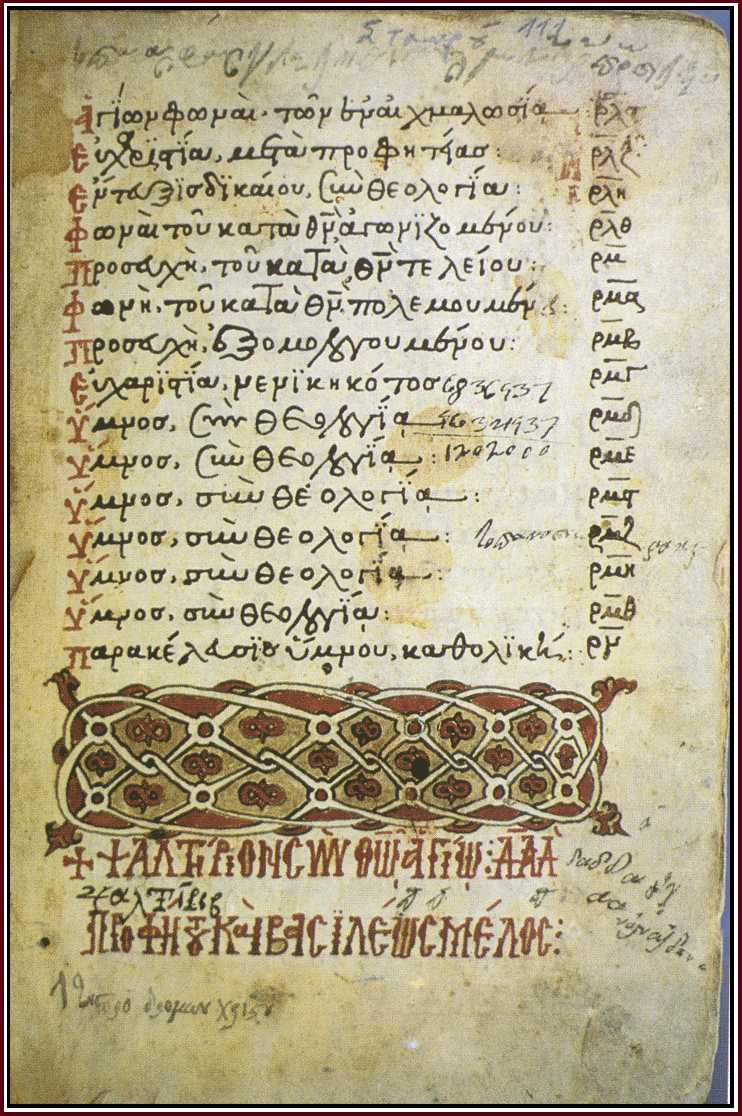 112
Ἁγίων φωναὶ· τῶν ἐν αἰχμαλωσία ρλς
Εὐχαριστία, μετὰ προφητείας: ρλζ
Ἔντευξις δικαίου, σὺν θεολογία: ρλη
Φωναὶ τοῦ κατὰ θν ἀγωνιζομένου: ρλθ
Προσευχὴ, τοῦ κατὰ θν τελείου: ρμ
Φωνὴ, τοῦ κατὰ θν πολεμουμένου: ρμα
Προσευχὴ, ἐξομολογουμένου: ρμβ
Εὐχαριστία, νενικηκότος ρμγ
Ὕμνος, σὺν θεολογία ρμδ
Ὕμνος, σὺν θεολογία: 1202000 ρμε
Ὕμνος, σὺν θεολογία: ρμς
Ὕμνος, σὺν θεολογία: ρμζ
Ὕμνος, σὺν θεολογία: ρμη
Ὕμνος, σὺν θεολογία: ρμθ
Παρακέλευσις ὕμνου, καθολικῆς: ρν
+ ΨΑΛΤΗΡΙΟΝ ΣῪΝ ΘΩ ἉΓΙΩ: ΔΑΔ
ΠΡΟΦΗΤΟΥ ΚΑῚ ΒΑΣΙΛΕΩΣ ΜΕΛΟΣ: